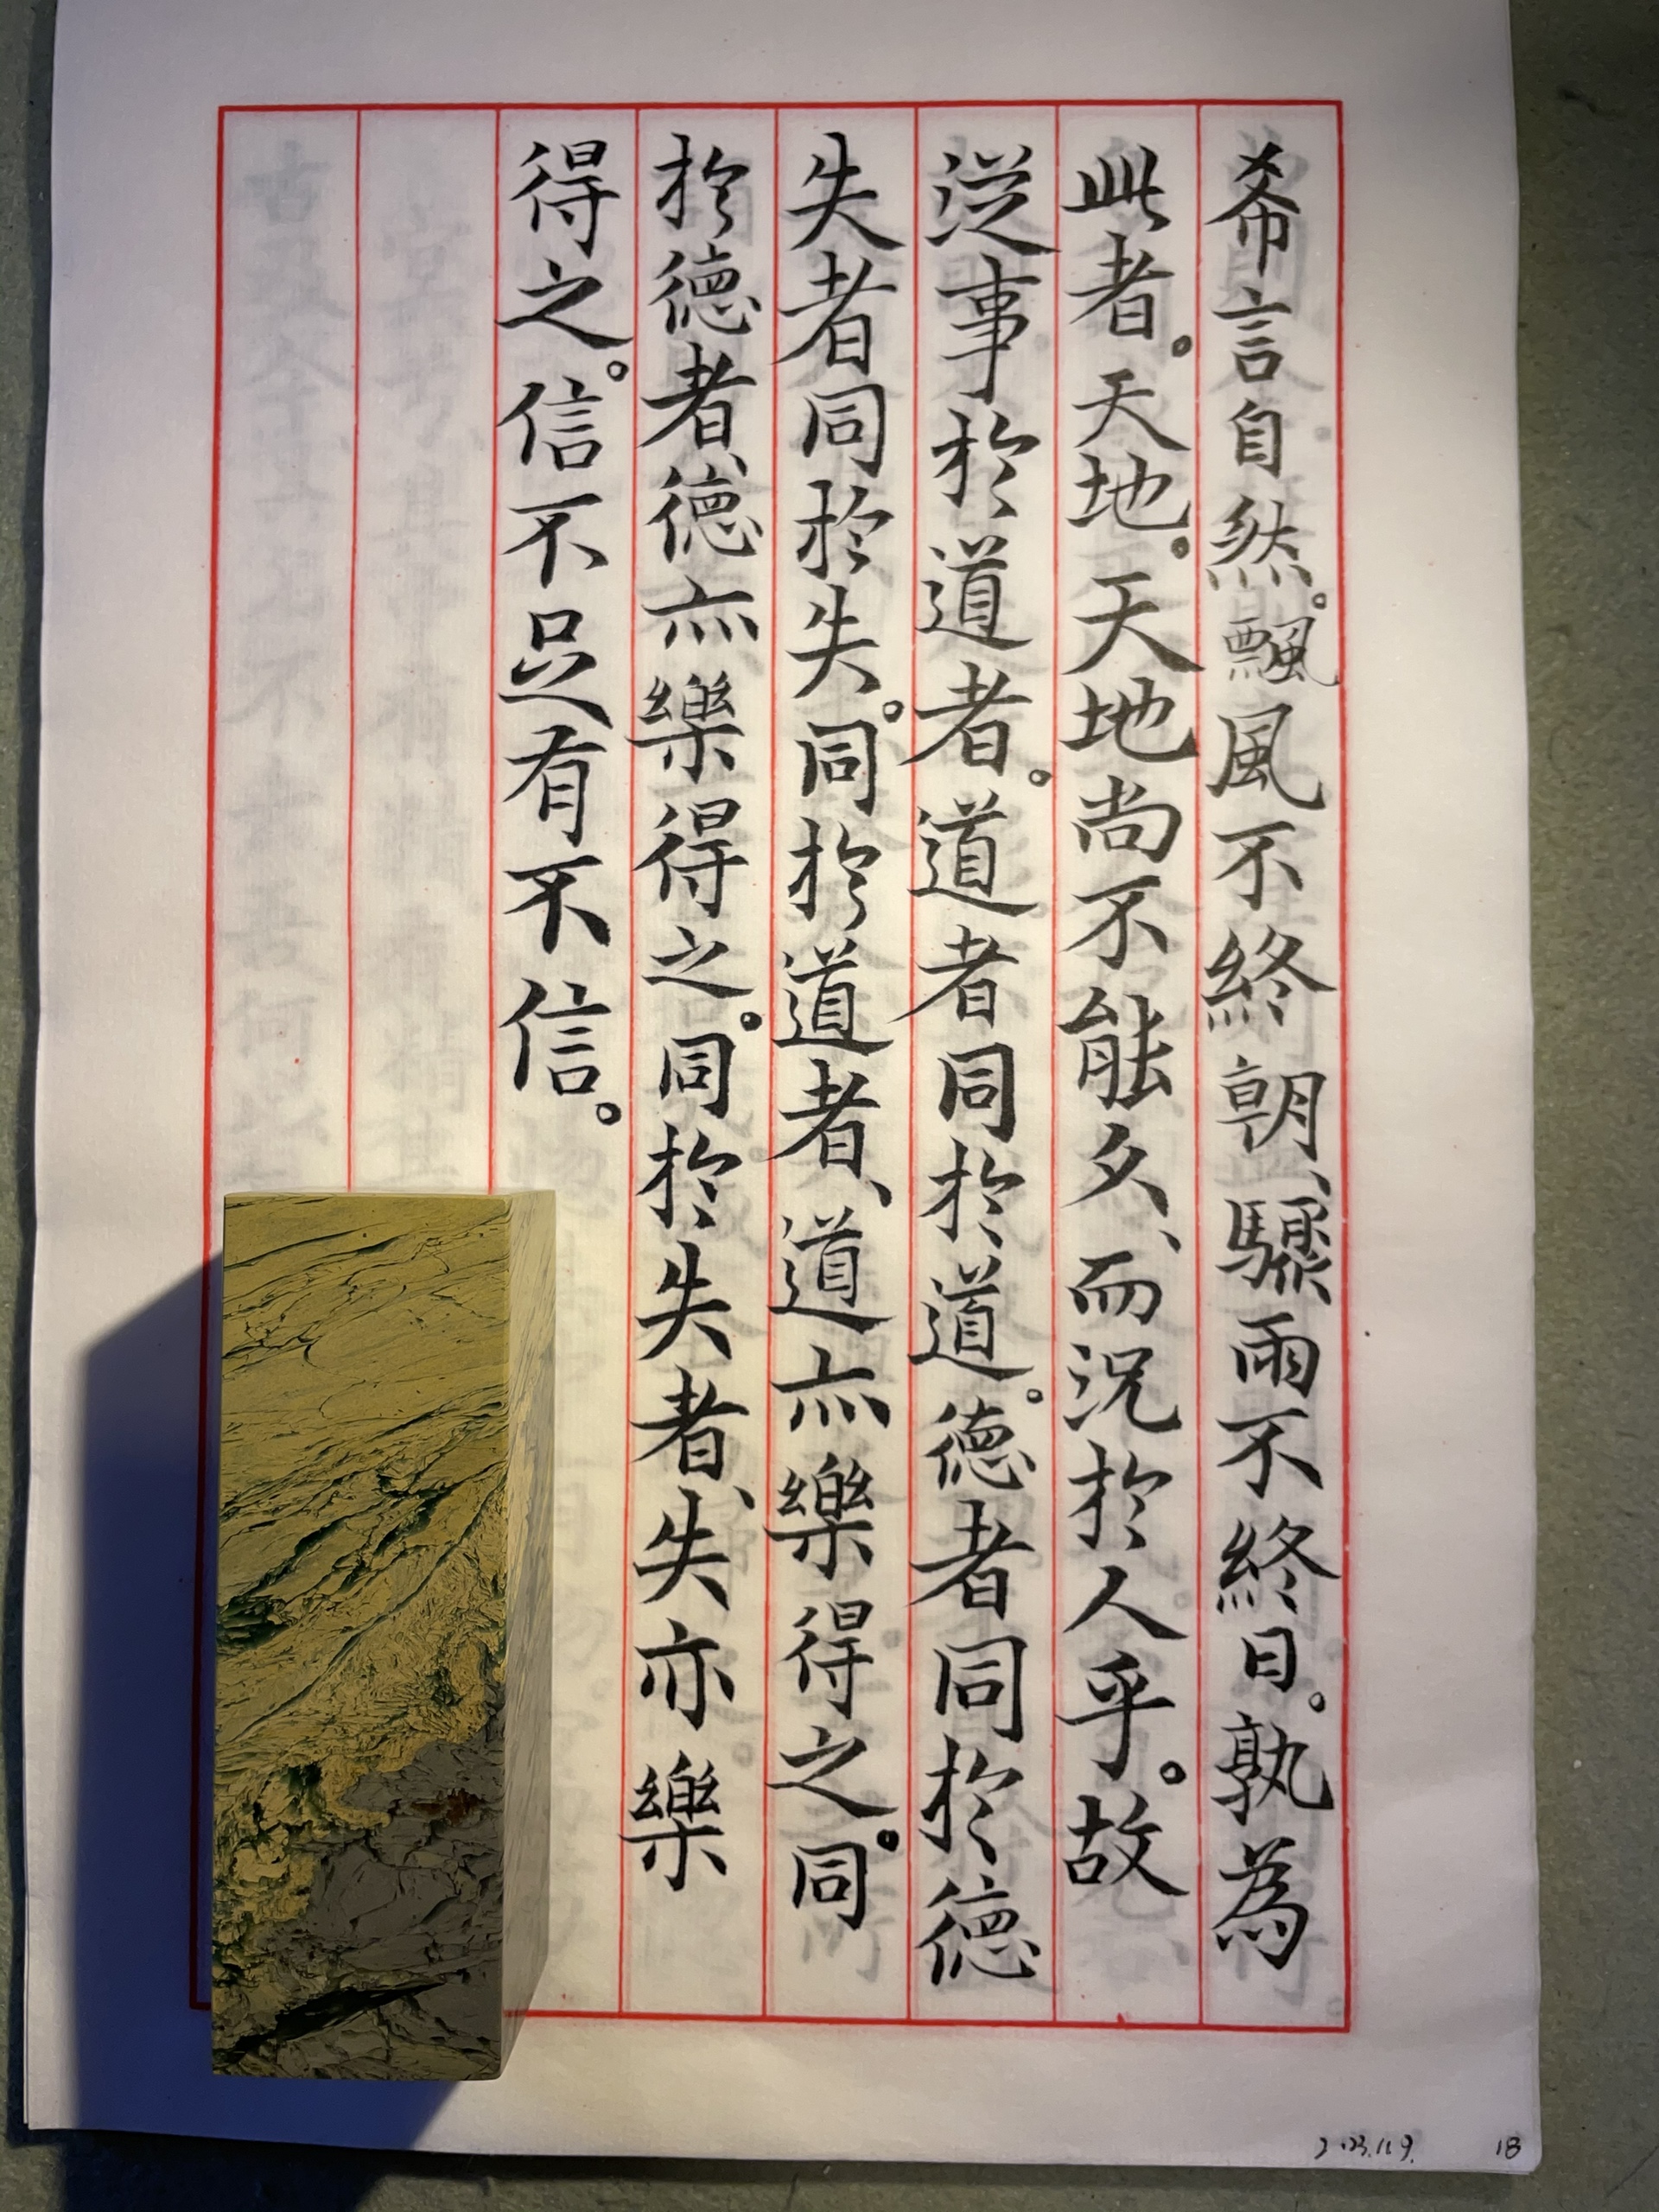 希言自然。飄風不終朝、驟雨不終日。孰為
此者。天地。天地尚不能久、而況於人乎。故
從事於道者。道者同於道。德者同於德
失者同於失。同於道者、道亦樂得之。同
於德者、德亦樂得之。同於失者、失亦樂
得之。信不足有不信。
18